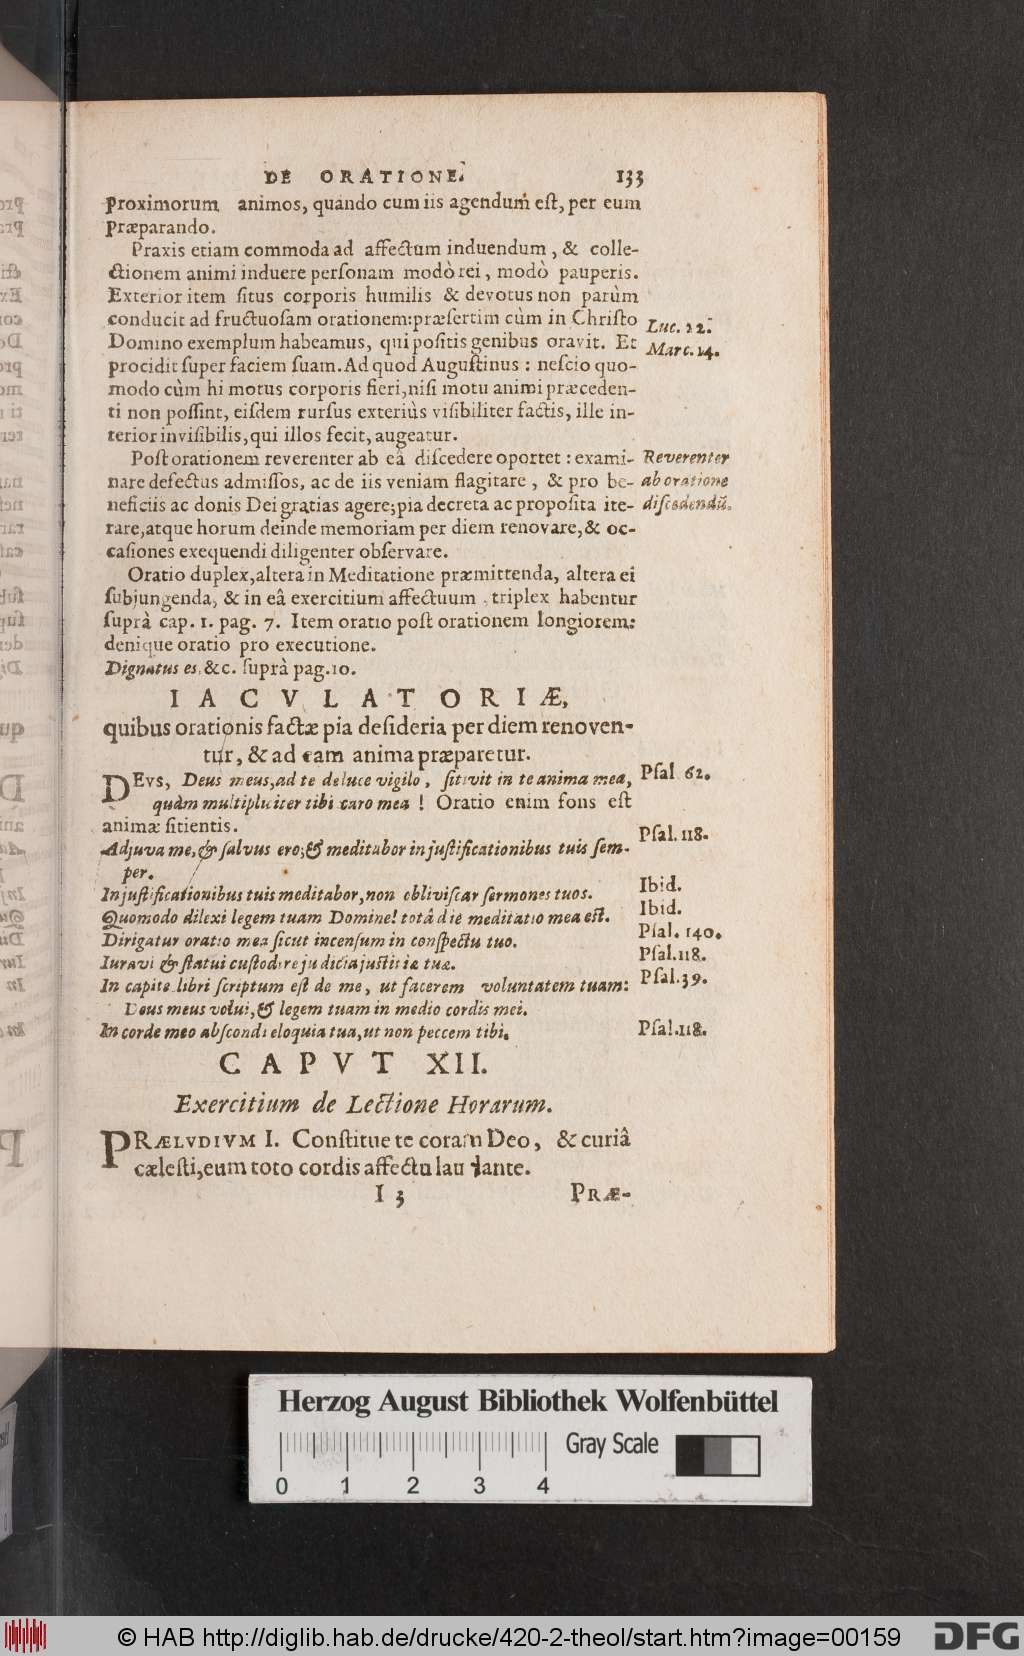 DE ORATIONE. 133
proximorum animos, quando cum iis agendum eſt, per eum
præparando.
Praxis etiam commoda ad affectum induendum, & colle-
ctionem animi induere perſonam modò rei, modò pauperis.
Exterior item ſitus corporis humilis & devotus non parùm
conducit ad fructuoſam orationem: præſertim cùm in Chriſto
Luc. 22.
Domino exemplum habeamus, qui poſitis genibus oravit. Et
Marc. 14.
procidit ſuper faciem ſuam. Ad quod Auguſtinus: neſcio quo-
modo cùm hi motus corporis fieri, niſi motu animi præceden-
ti non poſſint, eiſdem rurſus exteriùs viſibiliter factis, ille in-
terior inviſibilis, qui illos fecit, augeatur.
Poſt orationem reverenter ab eâ diſcedere oportet: exami-
Reverenter
nare defectus admiſſos, ac de iis veniam flagitare, & pro be-
ab oratione
neficiis ac donis Dei gratias agere; pia decreta ac propoſita ite-
diſcedendũ.
rare, atque horum deinde memoriam per diem renovare, & oc-
caſiones exequendi diligenter obſervare.
Oratio duplex, altera in Meditatione præmittenda, altera ei
ſubjungenda, & in eâ exercitium affectuum triplex habentur
ſuprà cap. 1. pag. 7. Item oratio poſt orationem longiorem:
denique oratio pro executione.
Dignatus es, &c. ſuprà pag. 10.
IACVLATORIÆ,
quibus orationis factæ pia deſideria per diem renoven-
tur, & ad eam anima præparetur.
DEVS, Deus meus, ad te de luce vigilo, ſitivit in te anima mea,
Pſal. 62.
quàm multipliciter tibi caro mea! Oratio enim fons eſt
animæ ſitientis.
Adjuva me, & ſalvus ero; & meditabor in juſtificationibus tuis ſem-
Pſal. 118.
per.
In juſtificationibus tuis meditabor, non obliviſcar ſermones tuos.
Ibid.
Quomodo dilexi legem tuam Domine! totâ die meditatio mea eſt.
Ibid.
Dirigatur oratio mea ſicut incenſum in conſpectu tuo.
Pſal. 140.
Iuravi & ſtatui cuſtodire judicia juſtitiæ tuæ.
Pſal. 118.
In capite libri ſcriptum eſt de me, ut facerem voluntatem tuam:
Pſal. 39.
Deus meus volui, & legem tuam in medio cordis mei.
In corde meo abſcondi eloquia tua, ut non peccem tibi.
Pſal. 118.
CAPVT XII.
Exercitium de Lectione Horarum.
PRÆLVDIVM I. Conſtitue te coram Deo, & curiâ
cæleſti, eum toto cordis affectu laudante.
I 3 PRÆ-
Herzog August Bibliothek Wolfenbüttel
Gray Scale
0 1 2 3 4
© HAB http://diglib.hab.de/drucke/420-2-theol/start.htm?image=00159
DFG